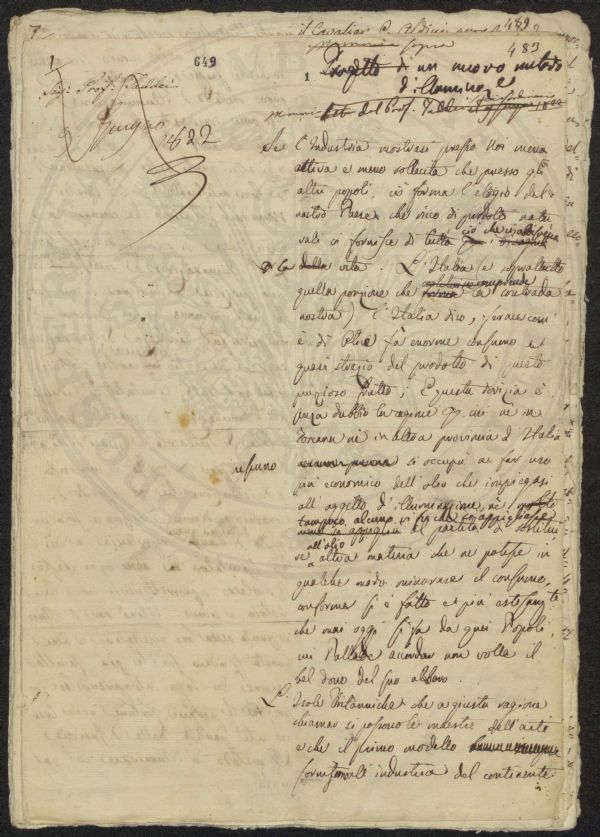 il Cavaliere
489
483
649
1
Progetto di un nuovo metodo
d'illuminare
Sig. Prof. Taddei
Giugno
1822
del Prof. Taddei
Se l'Industria mostrasi presso Noi meno
attiva e meno sollecita che presso gli
altri popoli, ciò forma l'elogio del
nostro Paese che ricco di prodotti natu
rali ci fornisce di tutto ciò che
della vita. L'Italia (e soprattutto
quella porzione che comprende la contrada
nostra) l'Italia dico, ferace com'
è di Olive fà enorme consumo e
quasi strazio del prodotto di questo
prezioso frutto; E questa dovizia è
senza dubbio la cagione per cui nè in
Toscana nè in altra provincia d'Italia
nessuno si occupa a far uso
più economico dell'olio che impiegasi
all'oggetto d'illuminazione, nè
tampoco alcuno vi fu che s'appigliasse
al partito di sostitui
all'olio
re altra materia che ne potesse in
qualche modo minorare il consumo,
conforme si è fatto e più estesamte
che mai oggi si fa da quei Popoli,
cui Pallade accordar non volle il
bel dono del suo albero.
L'Isole Britanniche che a giusta ragione
chiamar si possono le maestre dell'arti
e che il primo modello
all'industria del continente